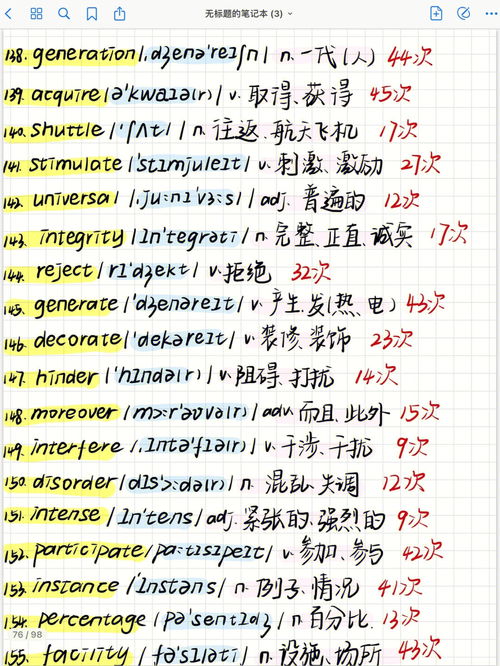 无标题的笔记本 (3)
138. generation /ˌdʒenə'reɪʃn/ n. 一代(人) 44次
139. acquire /ə'kwaɪə(r)/ v. 取得、获得 45次
140. shuttle /'ʃʌtl/ n. 往返、航天飞机 17次
141. stimulate /'stɪmjuleɪt/ v. 刺激、激励 27次
142. universal /ˌjuːnɪ'vɜːsl/ adj. 普遍的 12次
143. integrity /ɪn'tegrəti/ n. 完整、正直、诚实 17次
144. reject /rɪ'dʒekt/ v. 拒绝 32次
145. generate /'dʒenəreɪt/ v. 产生、发(热、电) 43次
146. decorate /'dekəreɪt/ v. 装修、装饰 23次
147. hinder /'hɪndə(r)/ v. 阻碍、打扰 14次
148. moreover /mɔːr'əʊvə(r)/ adv. 而且、此外 15次
149. interfere /ˌɪntə'fɪə(r)/ v. 干涉、干扰 9次
150. disorder /dɪs'ɔːdə(r)/ n. 混乱、失调 12次
151. intense /ɪn'tens/ adj. 紧张的、强烈的 9次
152. participate /pɑːtɪsɪpeɪt/ v. 参加、参与 42次
153. instance /'ɪnstəns/ n. 例子、情况 41次
154. percentage /pə'sentɪdʒ/ n. 百分比 13次
76 / 98
155. facility /fə'sɪləti/ n. 设施、场所 43次